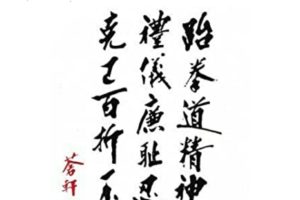 跆拳道精神
禮儀廉耻忍
克己百折不
蒼軒